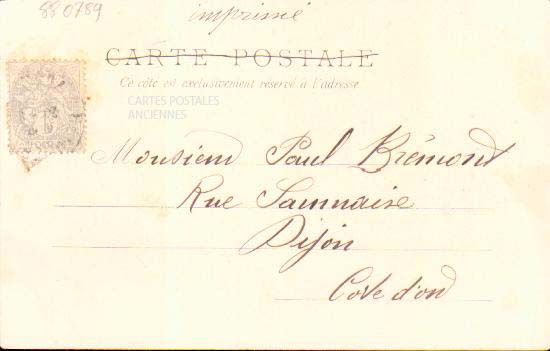 880789
imprimé
CARTE POSTALE
Ce côté est exclusivement réservé à l'adresse
CARTES POSTALES
ANCIENNES
Monsieur Paul Brémond
Rue Saumaise
Dijon
Cote d'or